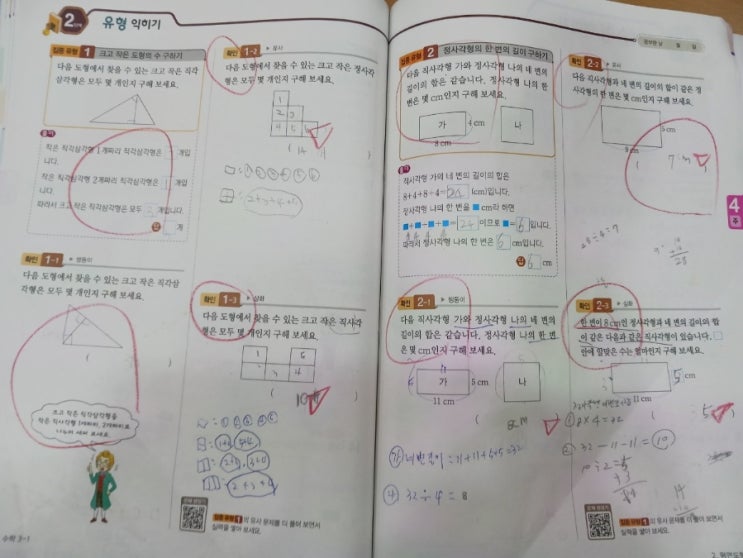 2 단계 유형 익히기
집중 유형 1 크고 작은 도형의 수 구하기
다음 도형에서 찾을 수 있는 크고 작은 직각
삼각형은 모두 몇 개인지 구해 보세요.
풀이
작은 직각삼각형 1개짜리 직각삼각형은 개입
니다.
작은 직각삼각형 2개짜리 직각삼각형은 1 개입
니다.
따라서 크고 작은 직각삼각형은 모두 3 개입니다.
답 개
확인 1-1 ▸쌍둥이
다음 도형에서 찾을 수 있는 크고 작은 직각삼
각형은 모두 몇 개인지 구해 보세요.
( )
크고 작은 직각삼각형을
수학 3-1
확인 1-2 ▸유사
다음 도형에서 찾을 수 있는 크고 작은 정사각
형은 모두 몇 개인지 구해 보세요.
1
2 3
4 5
( 14
□: ① ② ③ ④ ⑤ ⑥
2+3+4+5
확인 1-3 ▸심화
다음 도형에서 찾을 수 있는 크고 작은 직사각
형은 모두 몇 개인지 구해 보세요.
1 5
3 4
( )
2+3+4
집중 유형 1의 유사 문제를 더 풀어 보면서
실력을 쌓아 보세요.
집중 유형 2 정사각형의 한 변의 길이 구하기
다음 직사각형 가와 정사각형 나의 네 변의
길이의 합은 같습니다. 정사각형 나의 한
변은 몇 cm인지 구해 보세요.
가 4 cm 나
8 cm
풀이
직사각형 가의 네 변의 길이의 합은
8+4+8+4= 24 (cm)입니다.
정사각형 나의 한 변을 ■ cm라 하면
■+■+■+■= 24 이므로 ■= 6 입니다.
따라서 정사각형 나의 한 변은 6 cm입니다.
답 6 cm
확인 2-1 ▸쌍둥이
다음 직사각형 가와 정사각형 나의 네 변의
길이의 합은 같습니다. 정사각형 나의 한 변
은 몇 cm인지 구해 보세요.
가 5 cm 나
11 cm
( )
㉮ 네변길이 = 11+11+5+5=32
32÷4=8
공부한 날 월 일
확인 2-2 ▸유사
다음 직사각형과 네 변의 길이의 합이 같은 정
사각형의 한 변은 몇 cm인지 구해 보세요.
5 cm
9 cm
( 7
28÷4=7
28
4
확인 2-3 ▸심화
한 변이 8 cm인 정사각형과 네 변의 길이의 합
이 같은 다음과 같은 직사각형이 있습니다. □
안에 알맞은 수는 얼마인지 구해 보세요.
5 cm
11 cm
( 5
① 8×4=32
② 32-11-11=⑩
10÷2=5
집중 유형 2의 유사 문제를 더 풀어 보면서
실력을 쌓아 보세요.